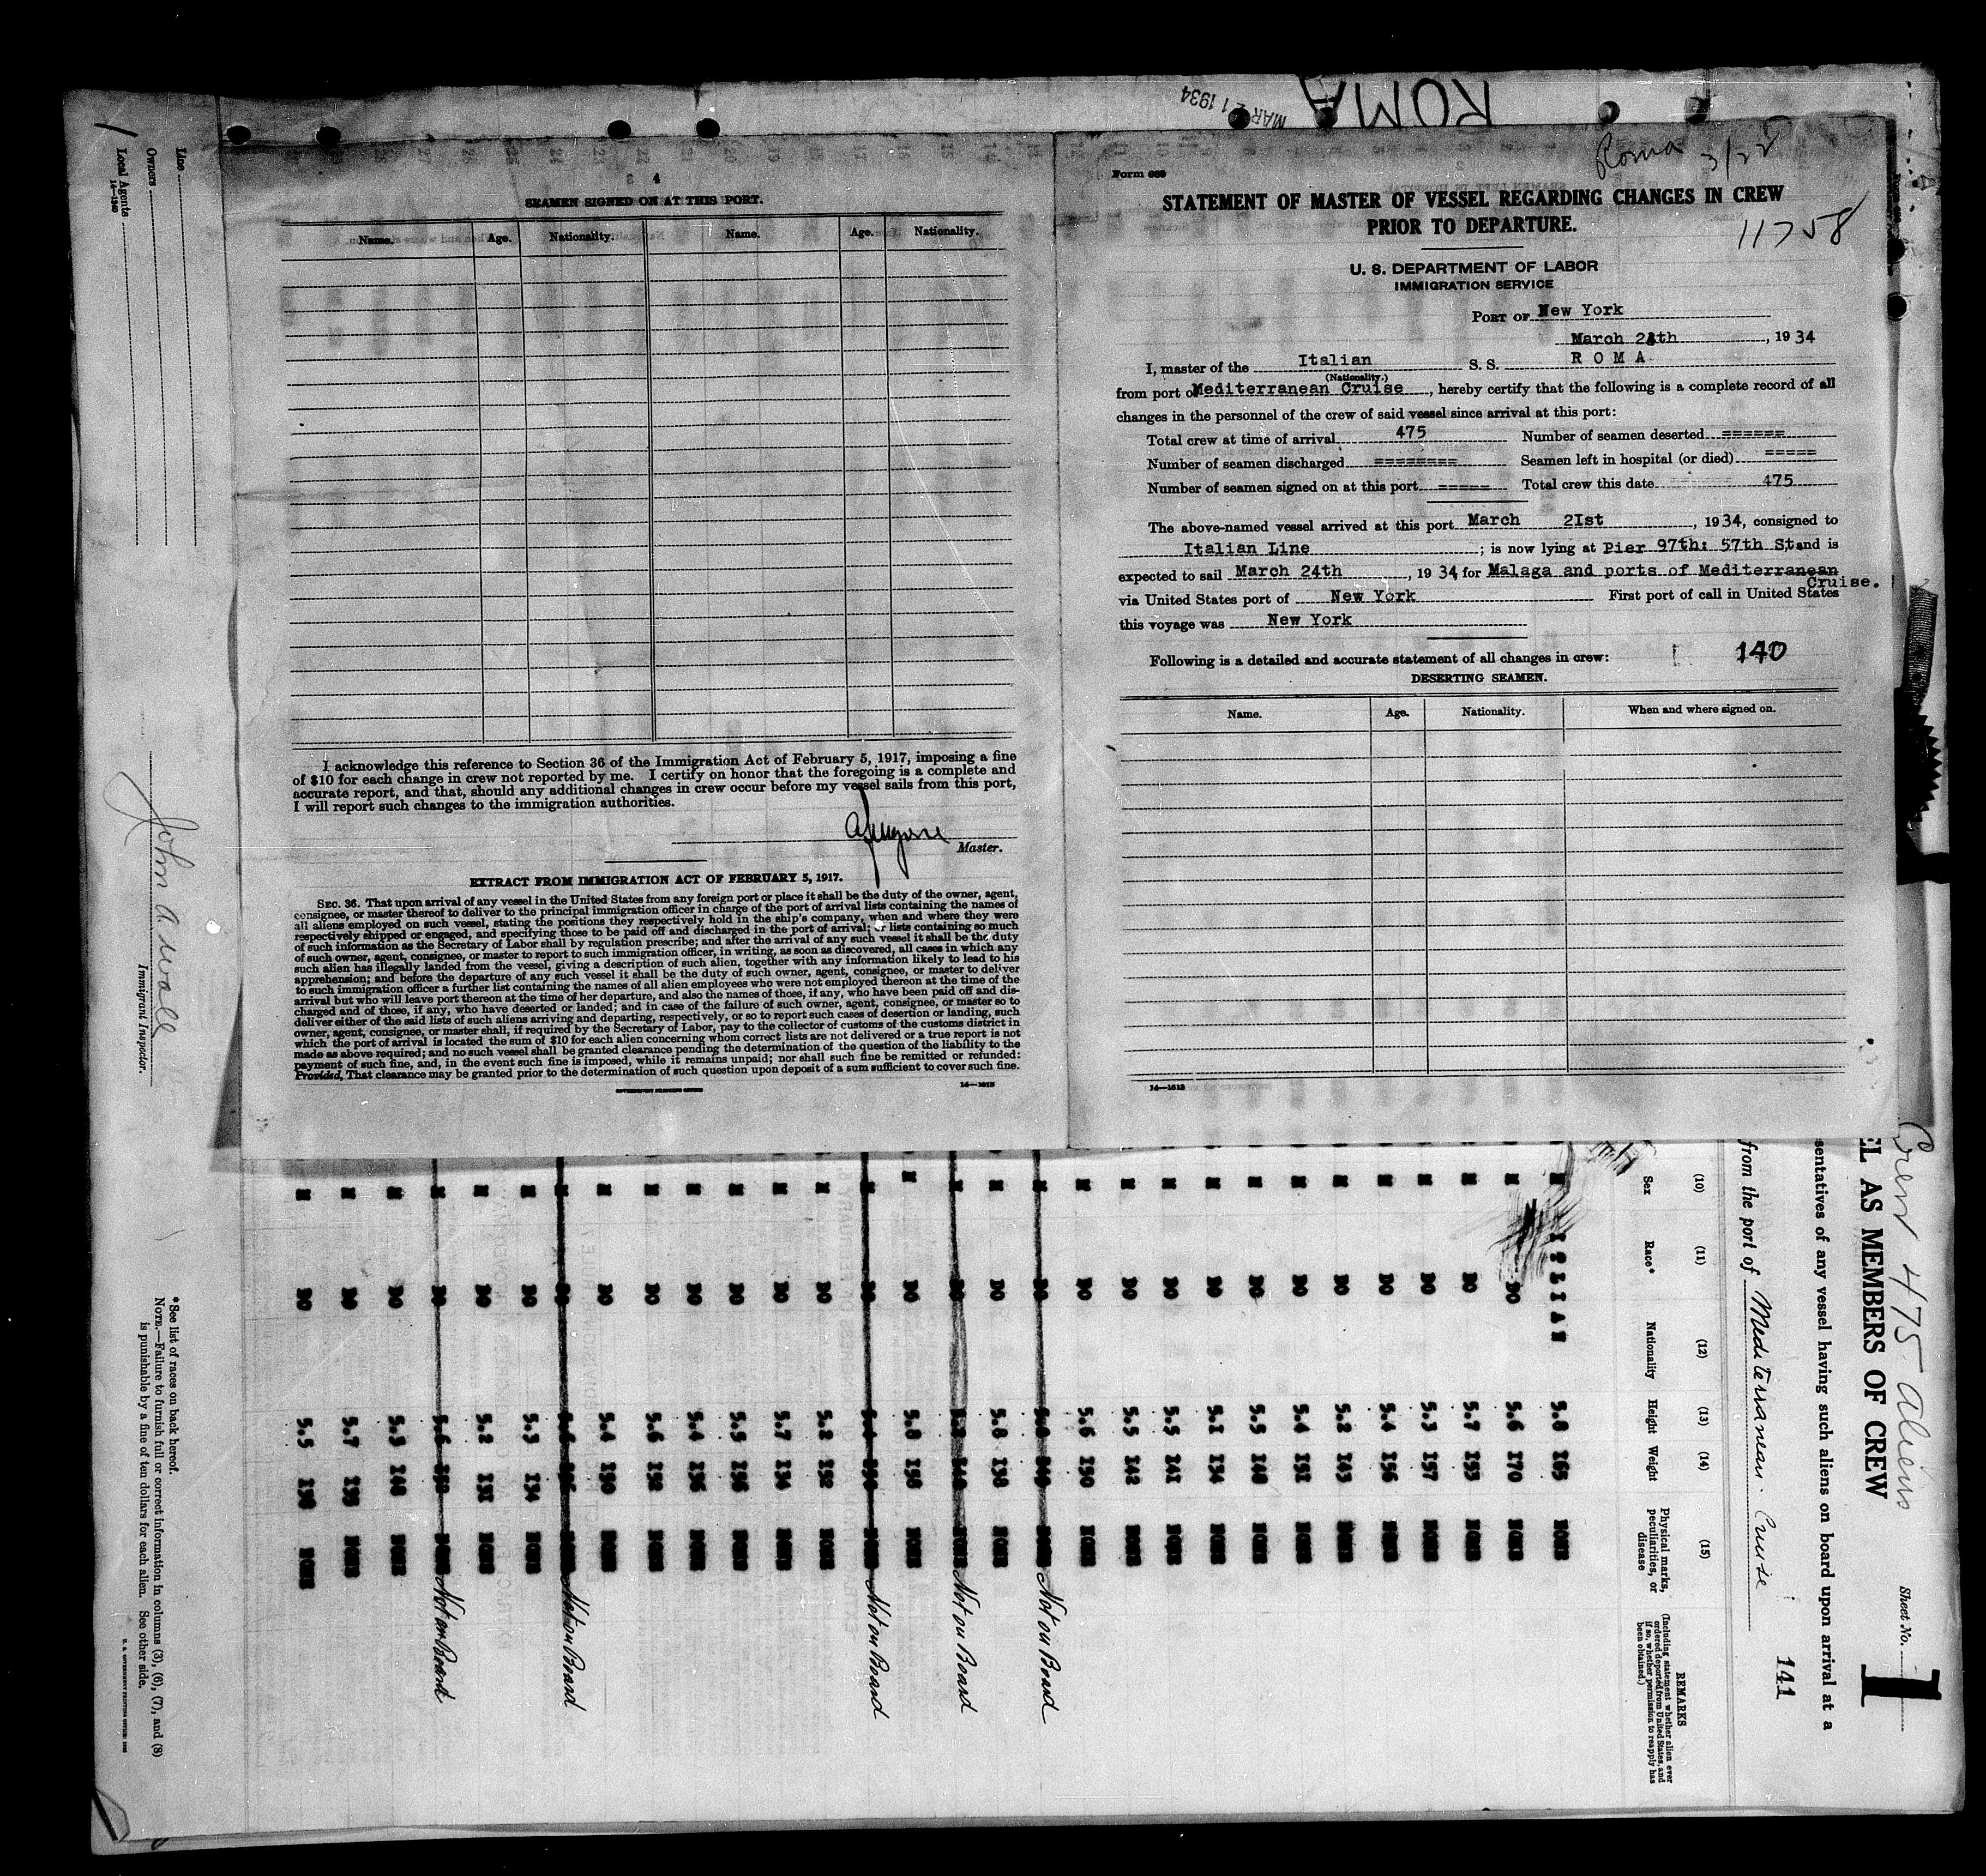 ROMA
MAR 21 1934
4
SEAMEN SIGNED ON AT THIS PORT.
Name. Age. Nationality. Name. Age. Nationality.
I acknowledge this reference to Section 36 of the Immigration Act of February 5, 1917, imposing a fine
of $10 for each change in crew not reported by me. I certify on honor that the foregoing is a complete and
accurate report, and that, should any additional changes in crew occur before my vessel sails from this port,
I will report such changes to the immigration authorities.
Master.
EXTRACT FROM IMMIGRATION ACT OF FEBRUARY 5, 1917.
SEC. 36. That upon arrival of any vessel in the United States from any foreign port or place it shall be the duty of the owner, agent,
consignee, or master thereof to deliver to the principal immigration officer in charge of the port of arrival lists containing the names of
all aliens employed on such vessel, stating the positions they respectively hold in the ship's company, when and where they were
respectively shipped or engaged, and specifying those to be paid off and discharged in the port of arrival; or lists containing so much
of such information as the Secretary of Labor shall by regulation prescribe; and after the arrival of any such vessel it shall be the duty
of such owner, agent, consignee, or master to report to such immigration officer, in writing, as soon as discovered, all cases in which any
such alien has illegally landed from the vessel, giving a description of such alien, together with any information likely to lead to his
apprehension; and before the departure of any such vessel it shall be the duty of such owner, agent, consignee, or master to deliver
to such immigration officer a further list containing the names of all alien employees who were not employed thereon at the time of the
arrival but who will leave port thereon at the time of her departure, and also the names of those, if any, who have been paid off and dis-
charged and of those, if any, who have deserted or landed; and in case of the failure of such owner, agent, consignee, or master so to
deliver either of the said lists of such aliens arriving and departing, respectively, or so to report such cases of desertion or landing, such
owner, agent, consignee, or master shall, if required by the Secretary of Labor, pay to the collector of customs of the customs district in
which the port of arrival is located the sum of $10 for each alien concerning whom correct lists are not delivered or a true report is not
made as above required; and no such vessel shall be granted clearance pending the determination of the question of the liability to the
payment of such fine, and, in the event such fine is imposed, while it remains unpaid; nor shall such fine be remitted or refunded:
Provided, That clearance may be granted prior to the determination of such question upon deposit of a sum sufficient to cover such fine.
GOVERNMENT PRINTING OFFICE 14—1613
Form 689
Roma 3/22
STATEMENT OF MASTER OF VESSEL REGARDING CHANGES IN CREW
PRIOR TO DEPARTURE.
11758
U. S. DEPARTMENT OF LABOR
IMMIGRATION SERVICE
PORT OF New York
March 24th, 1934
I, master of the Italian S. S. R O M A
(Nationality.)
from port of Mediterranean Cruise, hereby certify that the following is a complete record of all
changes in the personnel of the crew of said vessel since arrival at this port:
Total crew at time of arrival 475 Number of seamen deserted ======
Number of seamen discharged ======== Seamen left in hospital (or died) =====
Number of seamen signed on at this port ===== Total crew this date 475
The above-named vessel arrived at this port March 2Ist, 1934, consigned to
Italian Line; is now lying at Pier 97th: 57th St and is
expected to sail March 24th, 1934 for Malaga and ports of Mediterranean
Cruise.
via United States port of New York First port of call in United States
this voyage was New York
Following is a detailed and accurate statement of all changes in crew: 140
DESERTING SEAMEN.
Name. Age. Nationality. When and where signed on.
14—1613
Crew 475 aliens
Sheet No. 1
EL AS MEMBERS OF CREW
sentatives of any vessel having such aliens on board upon arrival at a
from the port of Mediterranean Cruise
141
(10) (11) (12) (13) (14) (15)
Sex Race* Nationality Height Weight Physical marks, peculiarities, or disease
REMARKS
(Including statement whether alien ever ordered deported from United States, and if so, whether permission to reapply has been obtained.)
M ITALIAN 5.8 I65 NONE
M DO 5.6 I70 NONE
M DO 5.7 I33 NONE
M DO 5.3 I37 NONE
M DO 5.4 I36 NONE
M DO 5.2 I43 NONE
M DO 5.4 I3I NONE
M DO 5.5 I48 NONE
M DO 5.I I34 NONE
M DO 5.5 I4I NONE
M DO 5.5 I42 NONE
M DO 5.6 I50 NONE
M DO NONE Not on Board
M DO 5.8 I38 NONE
M DO NONE Not on Board
M DO 5.8 I58 NONE
M DO NONE Not on Board
M DO 5.2 I52 NONE
M DO 5.7 I34 NONE
M DO 5.5 I56 NONE
M DO 5.4 I36 NONE
M DO 5.6 I52 NONE
M DO 5.4 I50 NONE
M DO NONE Not on Board
M DO 5.3 I34 NONE
M DO 5.2 I3I NONE
M DO NONE Not on Board
M DO 5.3 I48 NONE
M DO 5.7 I35 NONE
M DO 5.5 I36 NONE
Line
Owners
Local Agents
14—1240
John A Wall
Immigrant Inspector.
*See list of races on back hereof.
NOTE.—Failure to furnish full or correct information in columns (3), (6), (7), and (8)
is punishable by a fine of ten dollars for each alien. See other side.
U. S. GOVERNMENT PRINTING OFFICE